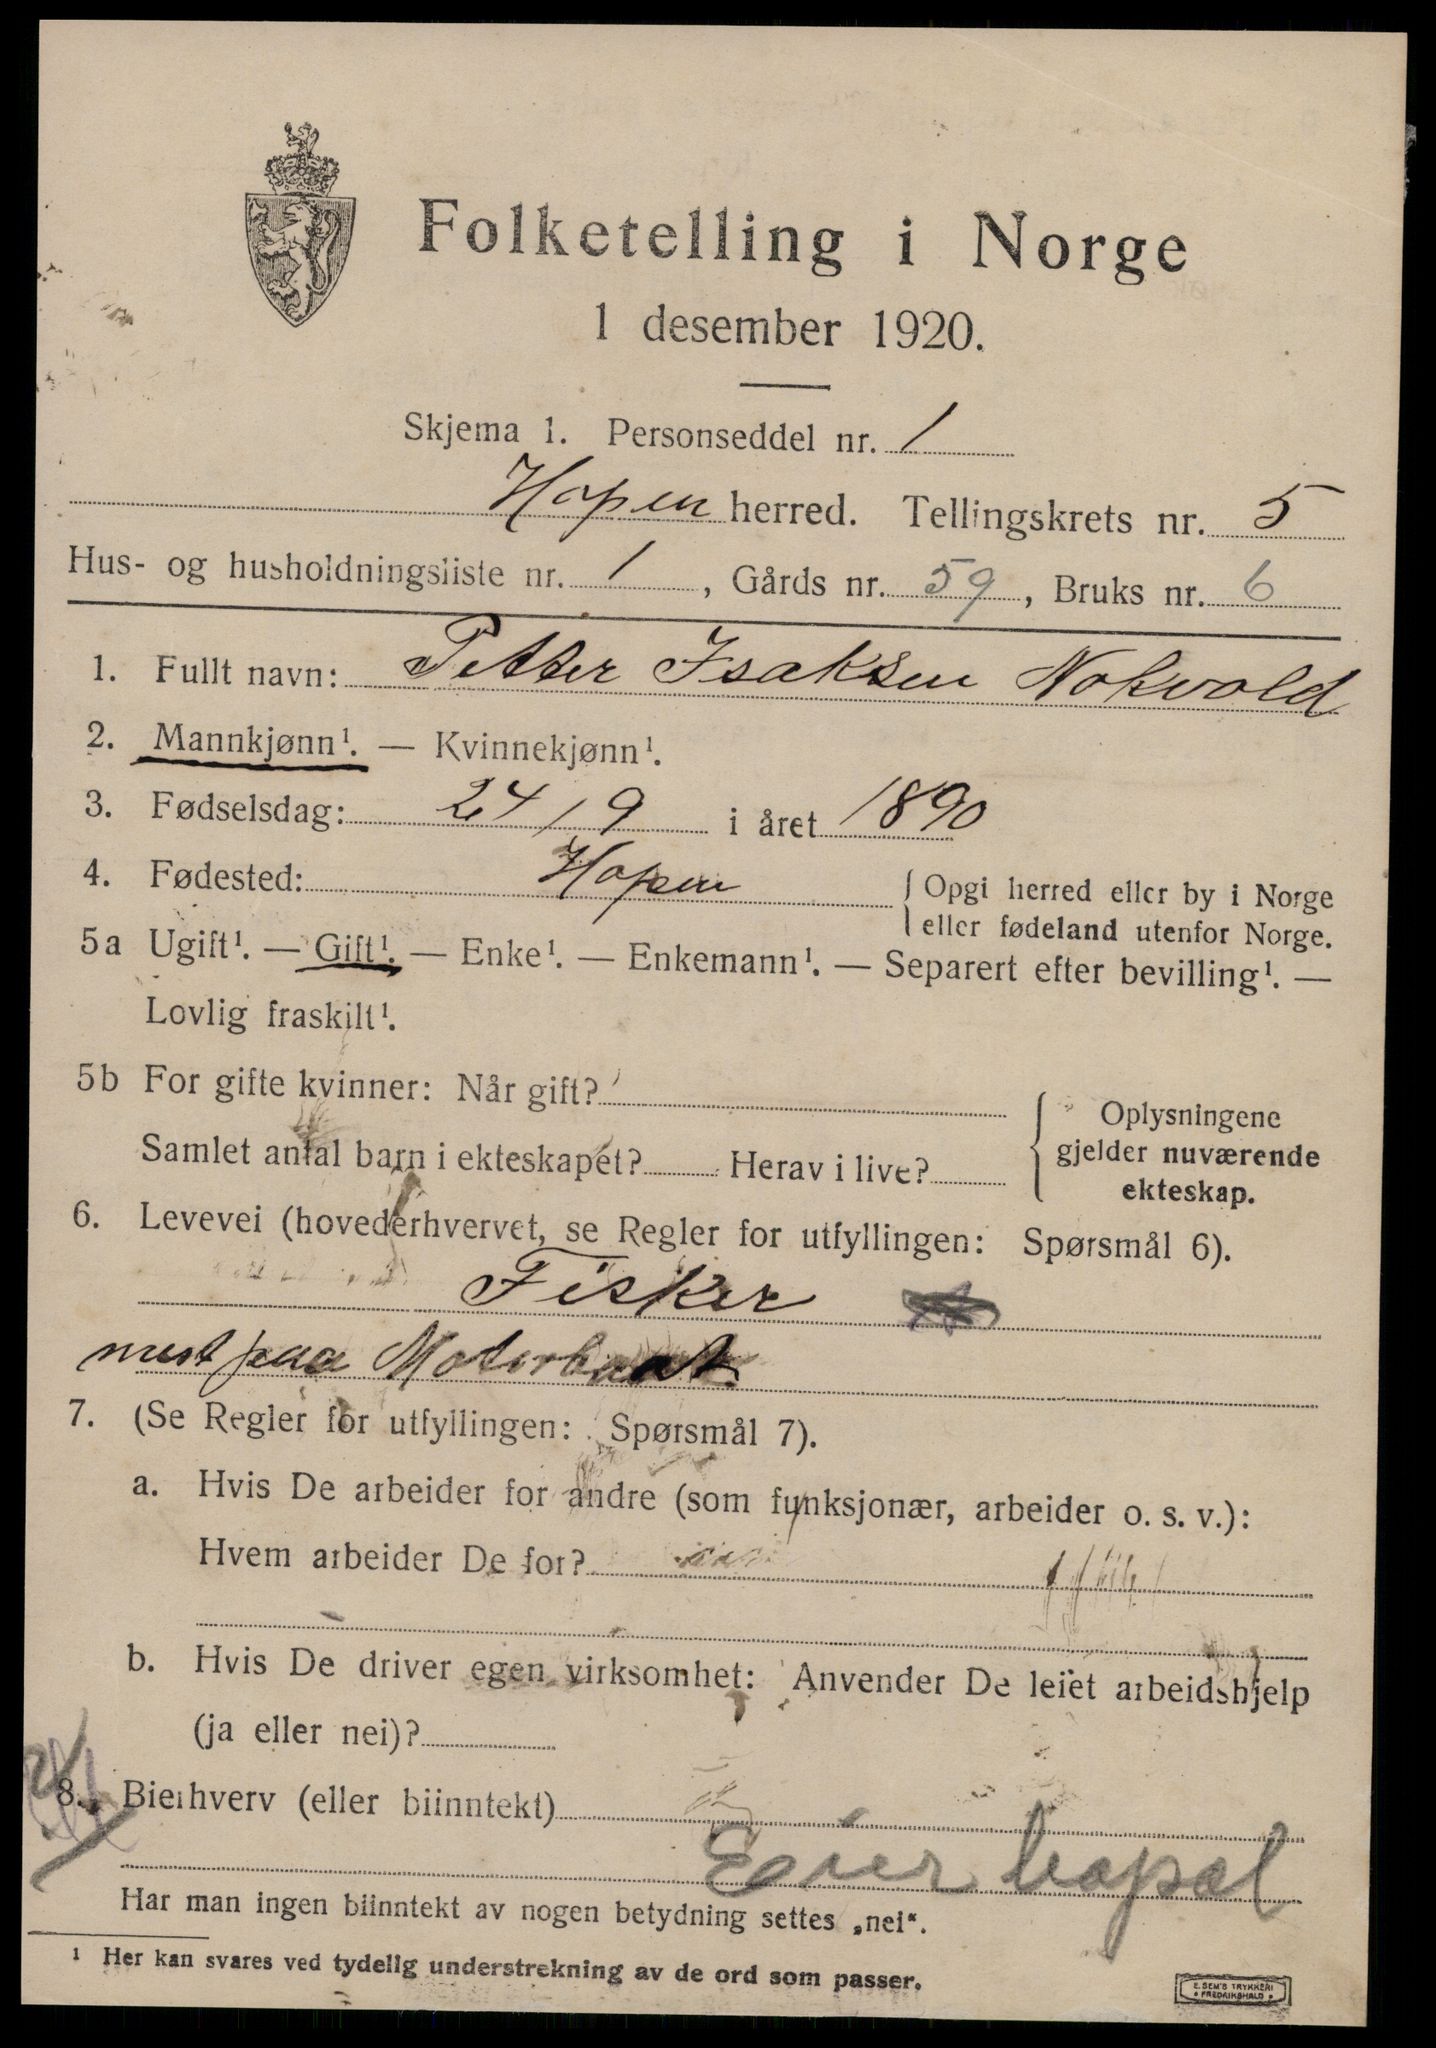 Folketelling i Norge
1 desember 1920.
Skjema 1. Personseddel nr. 1
Hopen herred. Tellingskrets nr. 5
Hus- og husholdningsliste nr. 1, Gårds nr. 59, Bruks nr. 6
1. Fullt navn: Petter Isaksen Nokvold
2. Mannkjønn¹. — Kvinnekjønn¹.
3. Fødselsdag: 24/9 i året 1890
4. Fødested: Hopen { Opgi herred eller by i Norge
eller fødeland utenfor Norge.
5a Ugift¹. — Gift¹. — Enke¹. — Enkemann¹. — Separert efter bevilling¹. —
Lovlig fraskilt¹.
5b For gifte kvinner: Når gift?
Samlet antal barn i ekteskapet? Herav i live?
{ Oplysningene
gjelder nuværende
ekteskap.
6. Levevei (hovederhvervet, se Regler for utfyllingen: Spørsmål 6).
Fisker
mest paa Motorbaat
7. (Se Regler for utfyllingen: Spørsmål 7).
a. Hvis De arbeider for andre (som funksjonær, arbeider o. s. v.):
Hvem arbeider De for?
b. Hvis De driver egen virksomhet: Anvender De leiet arbeidshjelp
(ja eller nei)?
8. Bierhverv (eller biinntekt)
Eier
Har man ingen biinntekt av nogen betydning settes „nei“.
¹ Her kan svares ved tydelig understrekning av de ord som passer.
E. SEM'S TRYKKERI
• FREDRIKSHALD •